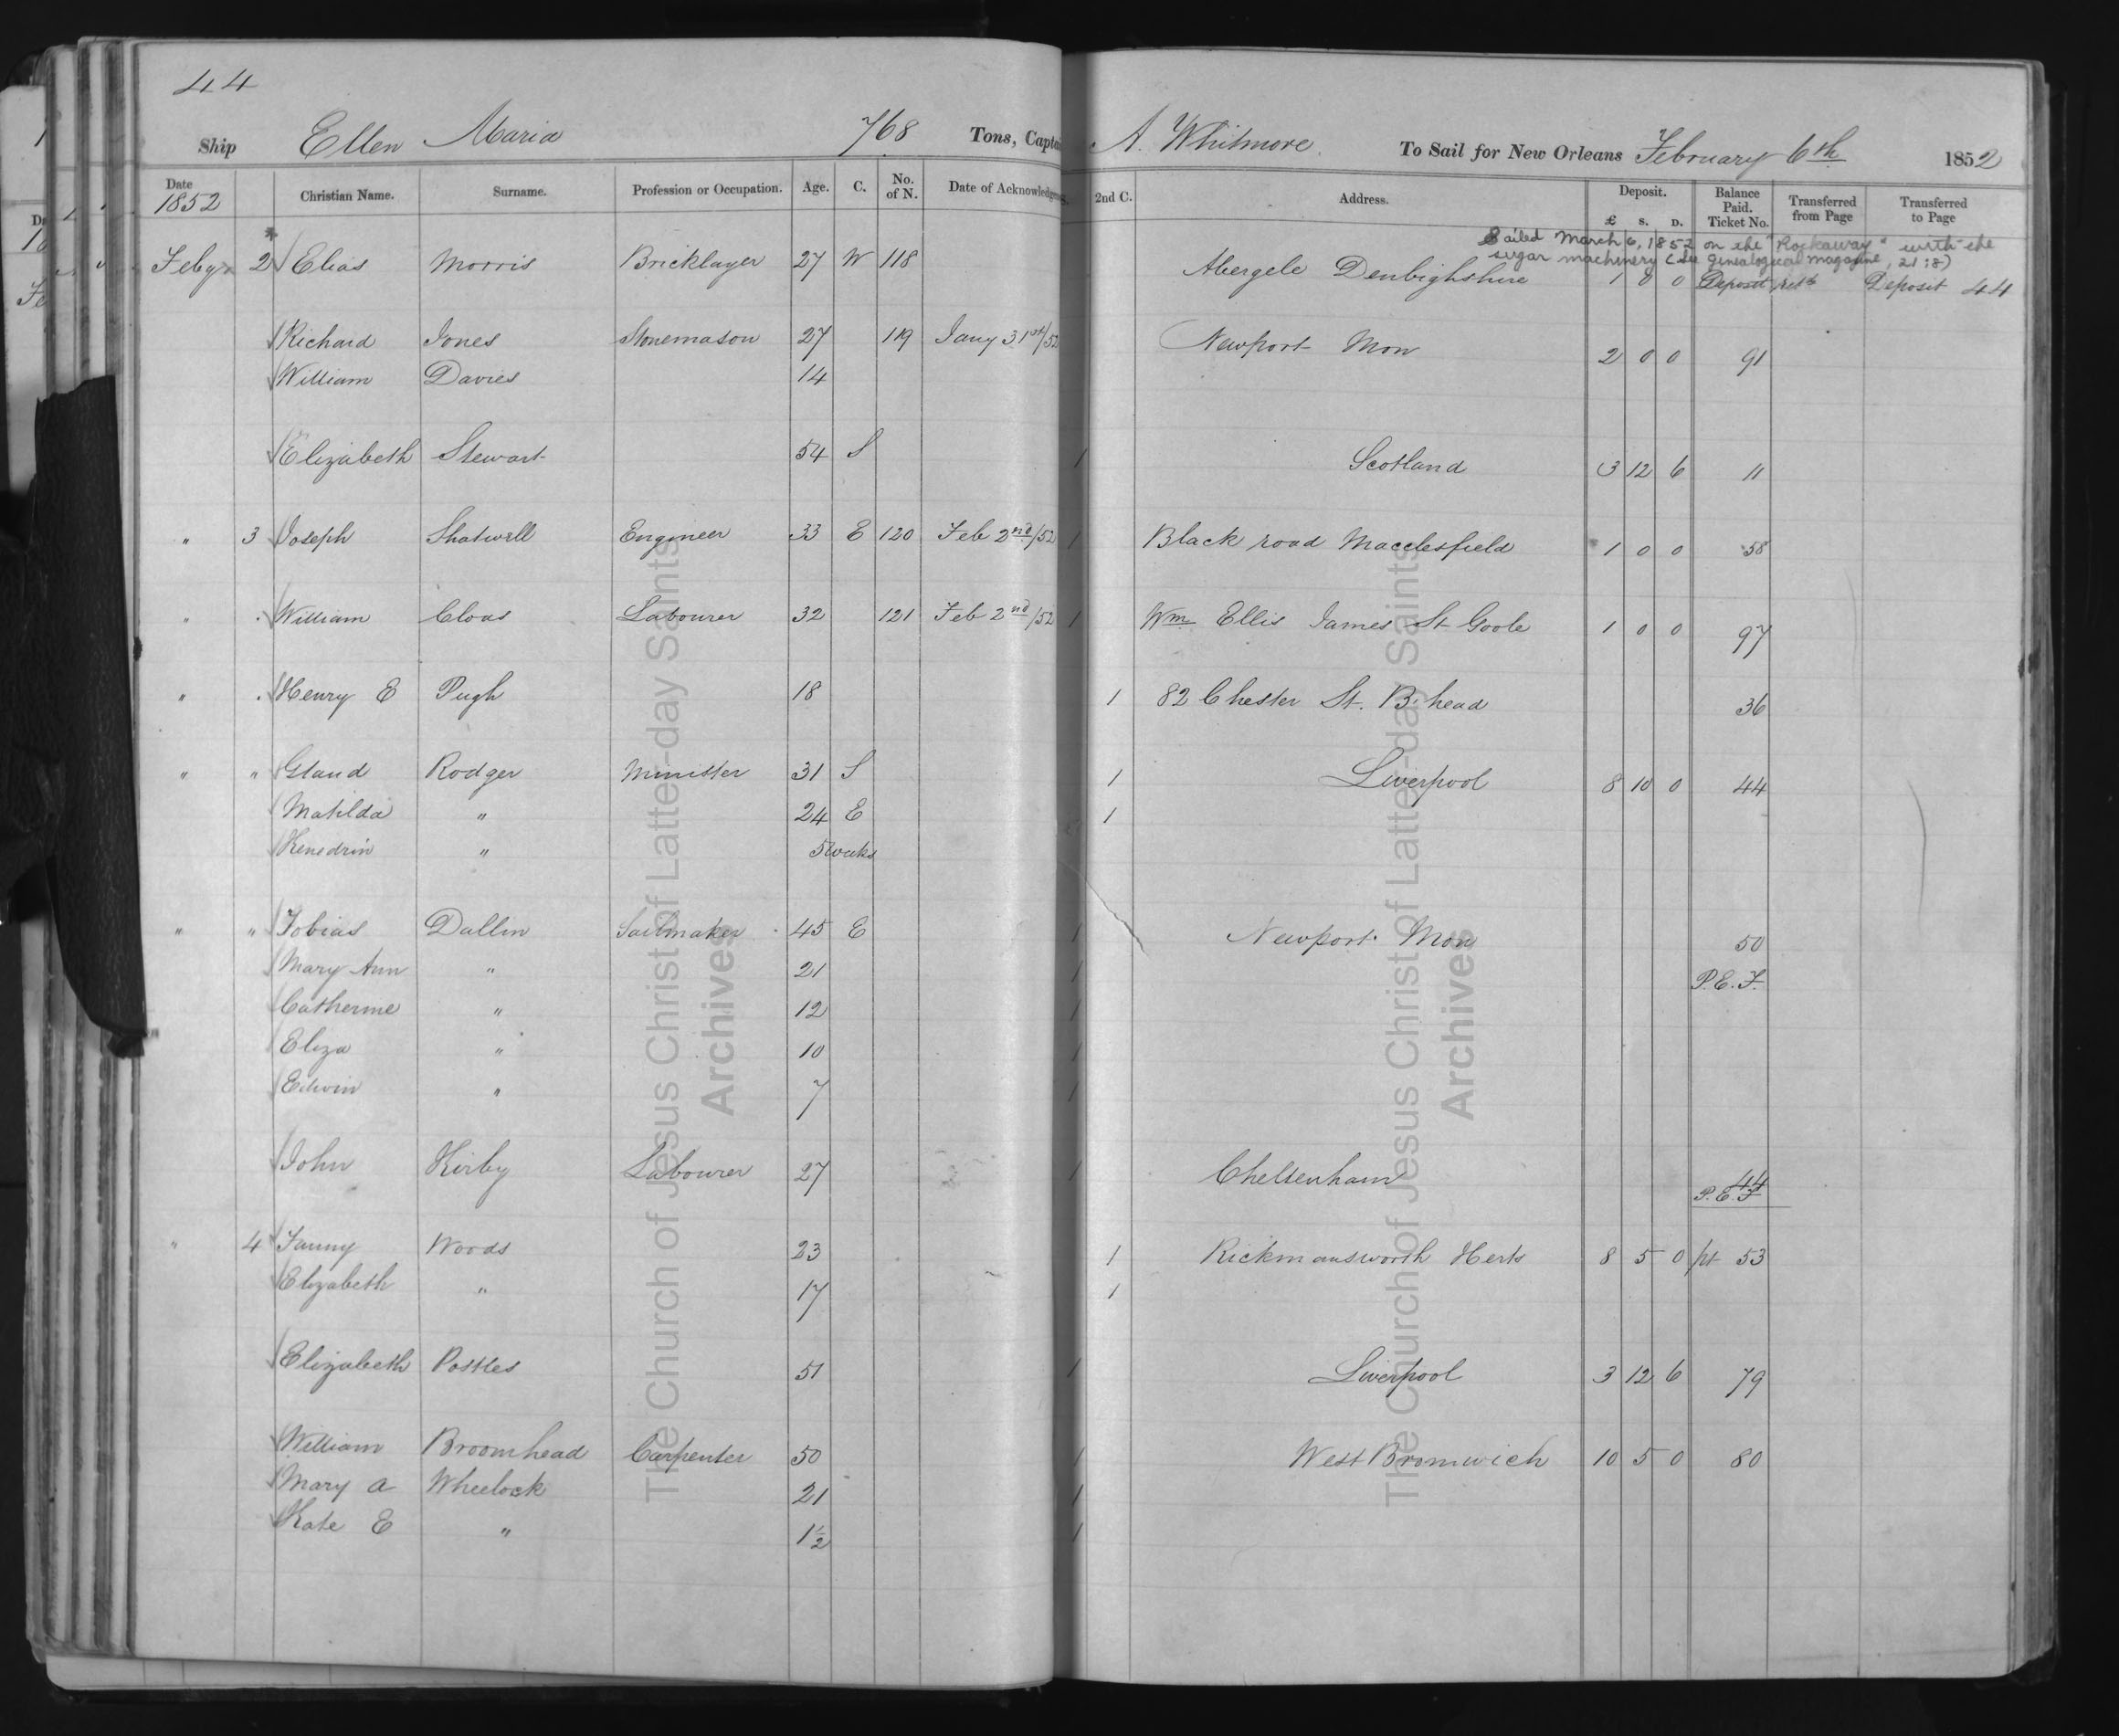 44
Ship Ellen Maria 768 Tons, Captai A. Whitmore To Sail for New Orleans February 6th 1852
Date 1852 Christian Name. Surname. Profession or Occupation. Age. C. No. of N. Date of Acknowledgmen 2nd C. Address. Deposit. £ s. D. Balance Paid. Ticket No. Transferred from Page Transferred to Page
Sailed March 6, 1852 on the "Rockaway" with the
sugar machinery (see Genealogical magazine, 21:8)
Feby 2 Elias Morris Bricklayer 27 W 118 Abergele Denbighshire 1 0 0 Deposit retd Deposit 44
Richard Jones Stonemason 27 119 Jany 31st/52 Newport Mon 2 0 0 91
William Davies 14
Elizabeth Stewart 54 S 1 Scotland 3 12 6 11
" 3 Joseph Shatwell Engineer 33 E 120 Feb 2nd/52 1 Black road Macclesfield 1 0 0 58
" . William Cloas Labourer 32 121 Feb 2nd/52 1 Wm Ellis James St Goole 1 0 0 97
" . Henry E Pugh 18 1 82 Chester St. B.head 36
" " Gland Rodger Minister 31 S 1 Liverpool 8 10 0 44
Matilda " 24 E 1
Kenedrin " 5 weeks
" " Tobias Dallin Sailmaker 45 E 1 Newport Mon 50
Mary Ann " 21 1 P.E.F.
Catherine " 12 1
Eliza " 10 1
Edwin " 7 1
John Kirby Labourer 27 1 Cheltenham 44
P.E.F
" 4 Fanny Woods 23 1 Rickmansworth Herts 8 5 0 pt 53
Elizabeth " 17 1
Elizabeth Postles 51 1 Liverpool 3 12 6 79
William Broomhead Carpenter 50 1 West Bromwich 10 5 0 80
Mary A Wheelock 21 1
Kate E " 1½ 1
The Church of Jesus Christ of Latter-day Saints
Archives
The Church of Jesus Christ of Latter-day Saints
Archives